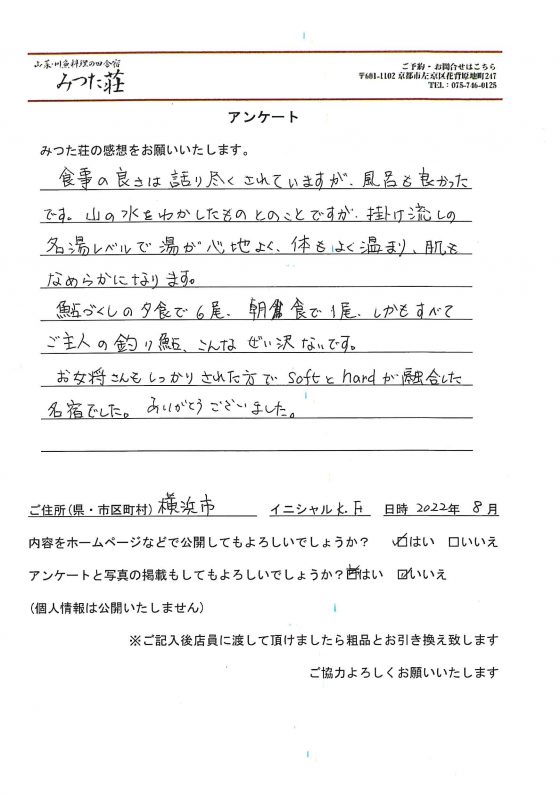 山菜・川魚料理の田舎宿
みつた荘
ご予約・お問合せはこちら
〒601-1102 京都市左京区花背原地町247
TEL:075-746-0125
アンケート
みつた荘の感想をお願いいたします。
食事の良さは語り尽くされていますが、風呂も良かった
です。山の水をわかしたものとのことですが、掛け流しの
名湯レベルで湯が心地よく、体もよく温まり、肌も
なめらかになります。
鮎づくしの夕食で6尾、朝食で1尾、しかもすべて
ご主人の釣り鮎、こんなぜい沢ないです。
お女将さんもしっかりされた方でsoftとhardが融合した
名宿でした。ありがとうございました。
ご住所(県・市区町村) 横浜市 イニシャル K.F 日時 2022年 8月
内容をホームページなどで公開してもよろしいでしょうか? ☑はい □いいえ
アンケートと写真の掲載もしてもよろしいでしょうか? はい ☑いいえ
(個人情報は公開いたしません)
※ご記入後店員に渡して頂けましたら粗品とお引き換え致します
ご協力よろしくお願いいたします